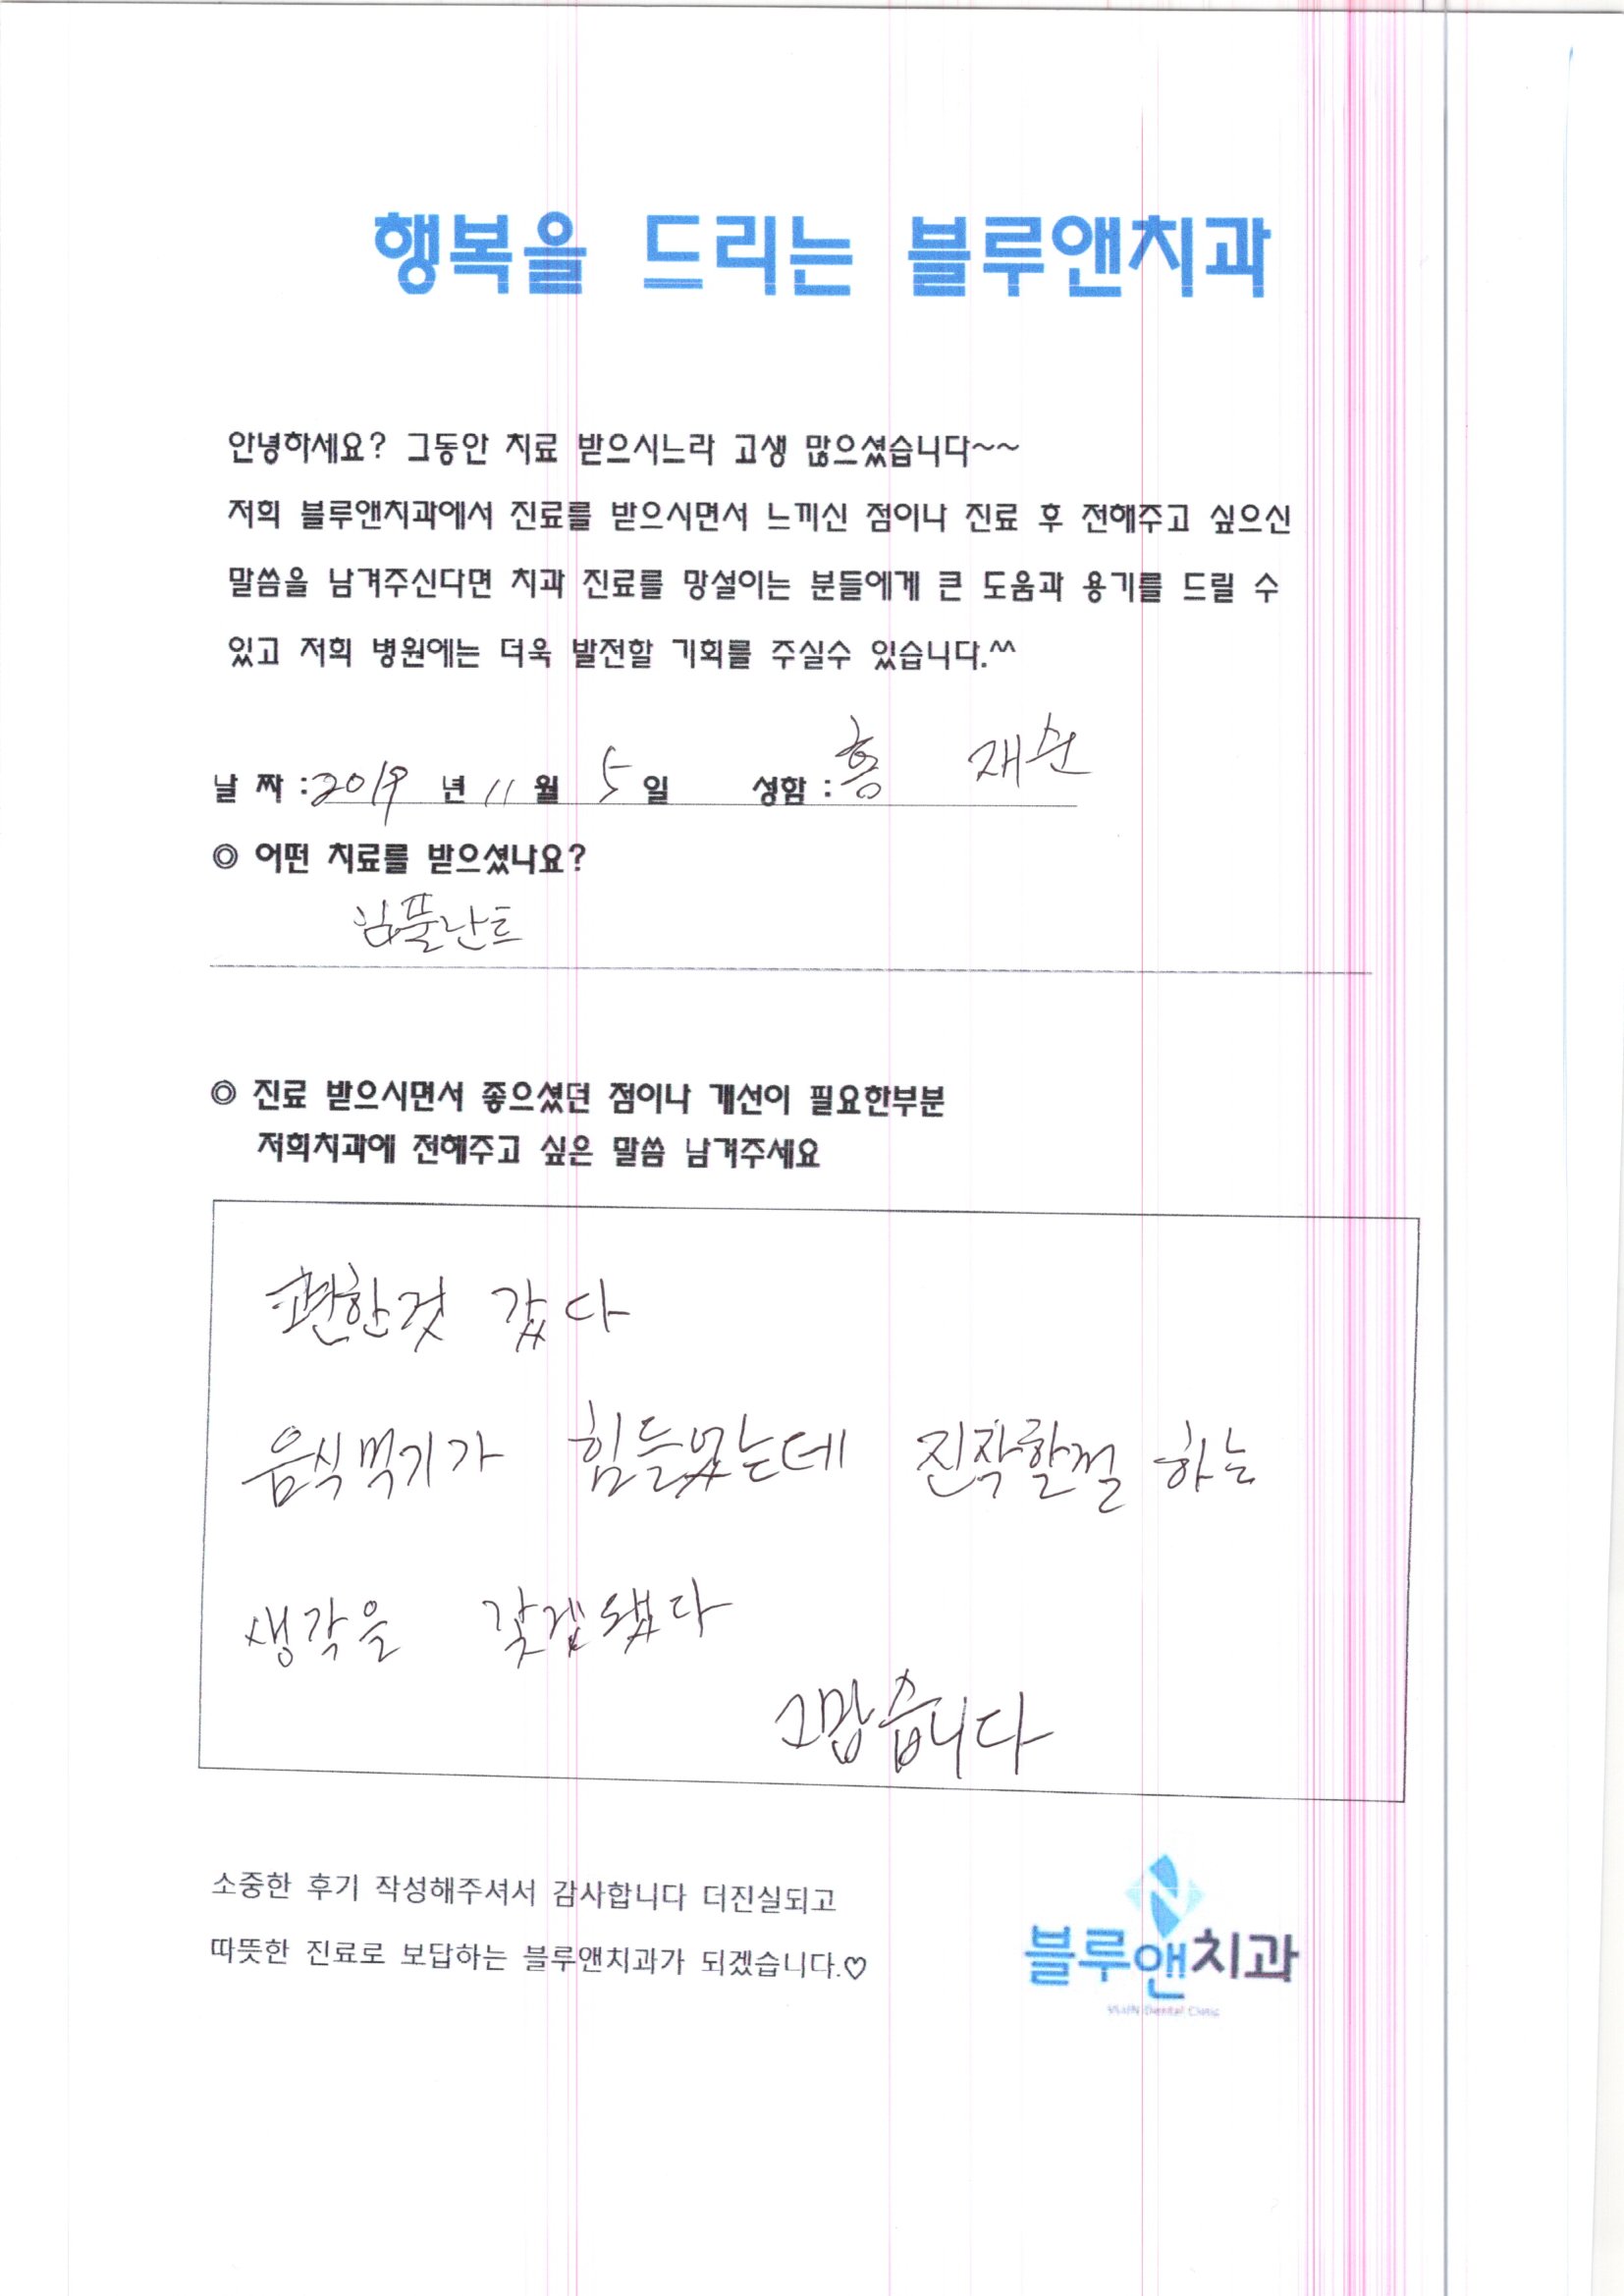 행복을 드리는 블루앤치과
안녕하세요? 그동안 치료 받으시느라 고생 많으셨습니다~~
저희 블루앤치과에서 진료를 받으시면서 느끼신 점이나 진료 후 전해주고 싶으신
말씀을 남겨주신다면 치과 진료를 망설이는 분들에게 큰 도움과 용기를 드릴 수
있고 저희 병원에는 더욱 발전할 기회를 주실수 있습니다.^^
날 짜 : 2019 년 11 월 5 일 성함 : 홍 재순
◎ 어떤 치료를 받으셨나요?
임플란트
◎ 진료 받으시면서 좋으셨던 점이나 개선이 필요한부분
저희치과에 전해주고 싶은 말씀 남겨주세요
편한것 갔다
음식먹기가 힘들었는데 진작할껄 하는
생각을 갖게됐다
고맙습니다
소중한 후기 작성해주셔서 감사합니다 더진실되고
따뜻한 진료로 보답하는 블루앤치과가 되겠습니다.♡
블루앤치과
Dental Clinic